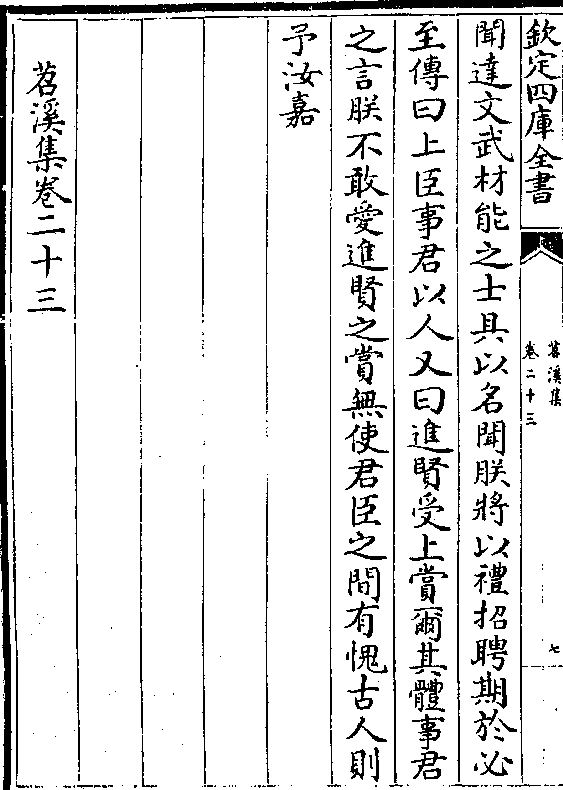 欽定四庫全書
苕溪集
卷二十三
七
聞達文武材能之士具以名聞朕將以禮招聘期於必
至傳曰上臣事君以人又曰進賢受上賞爾其體事君
之言朕不敢愛進賢之賞無使君臣之間有愧古人則
予汝嘉
苕溪集卷二十三